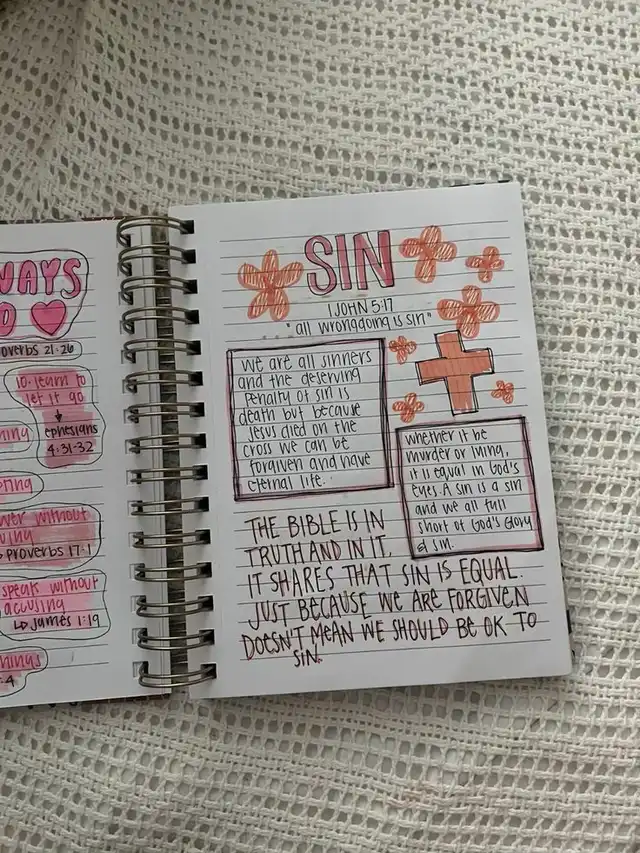 WAYS
O
overbs 21:26
10. learn to
let it go
ephesians
4:31-32
wer without
Proverbs 17:1
speak without
accusing
James 1:19
SIN
1 JOHN 5:17
"all wrongdoing is sin"
we are all sinners
and the deserving
penalty of sin is
death but because
Jesus died on the
cross we can be
forgiven and have
eternal life.
whether it be
murder or lying,
it is equal in God's
eyes. A sin is a sin
and we all fall
short of God's Glory
& sin.
THE BIBLE IS IN
TRUTH AND IN IT,
IT SHARES THAT SIN IS EQUAL.
JUST BECAUSE WE ARE FORGIVEN
DOESN'T MEAN WE SHOULD BE OK TO
SIN.